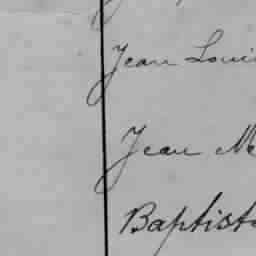 Jean Loui
Jean M
Baptist